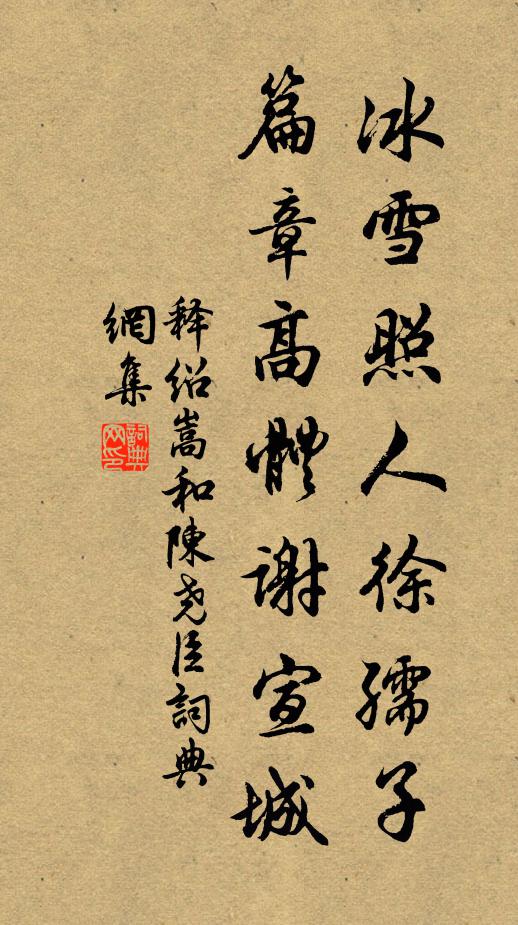 冰雪照人徐孺子
篇章高體謝宣城
释绍嵩和陳尧臣詞典
網集
詞典
网印